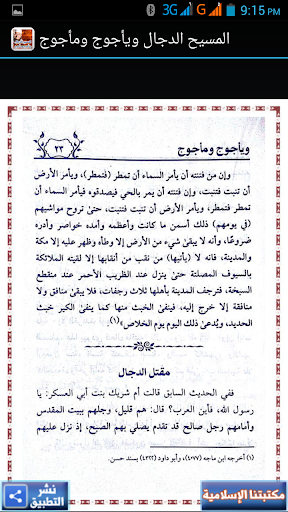 3G G 9:15 PM
المسيح الدجال ويأجوج ومأجوج
ويأجوج ومأجوج
٢٣
وإن من فتنته أن يأمر السماء أن تمطر (فتمطر)، ويأمر الأرض
أن تنبت فتنبت، وإن فتنته أن يمر بالحي فيصدقوه فيأمر السماء أن
تمطر فتمطر، ويأمر الأرض أن تنبت فتنبت، حتى تروح مواشيهم
(في يومهم) ذلك أسمن ما كانت وأعظمه وأمده خواصر وأدره
ضروعًا، وأنه لا يبقى شيء من الأرض إلا وطأه وظهر عليه إلا مكة
والمدينة، فأنه لا (يأتيها) من نقب من أنقابها إلا لقيته الملائكة
بالسيوف المصلتة حتى ينزل عند الظريب الأحمر عند منقطع
السبخة، فترجف المدينة بأهلها ثلاث رجفات، فلا يبقى منافق ولا
منافقة إلا خرج إليه، فينفى الخبث منها كما ينفي الكير خبث
الحديد، ويُدعى ذلك اليوم يوم الخلاص»(١).
مقتل الدجال
ففي الحديث السابق قالت أم شريك بنت أبي العسكر: يا
رسول الله، فأين العرب؟ قال: هم قليل، وجلهم ببيت المقدس
وأمامهم رجل صالح قد تقدم يصلي بهم الصبح، إذ نزل عليهم
(١) أخرجه ابن ماجه (٤٠٧٧)، وأبو داود (٤٣٢٢) بسند حسن.
نشر التطبيق
مكتبتنا الإسلامية